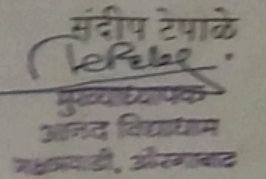 संदीप टेपाळे
मुख्याध्यापक
आनंद विद्याधाम
औरंगाबाद